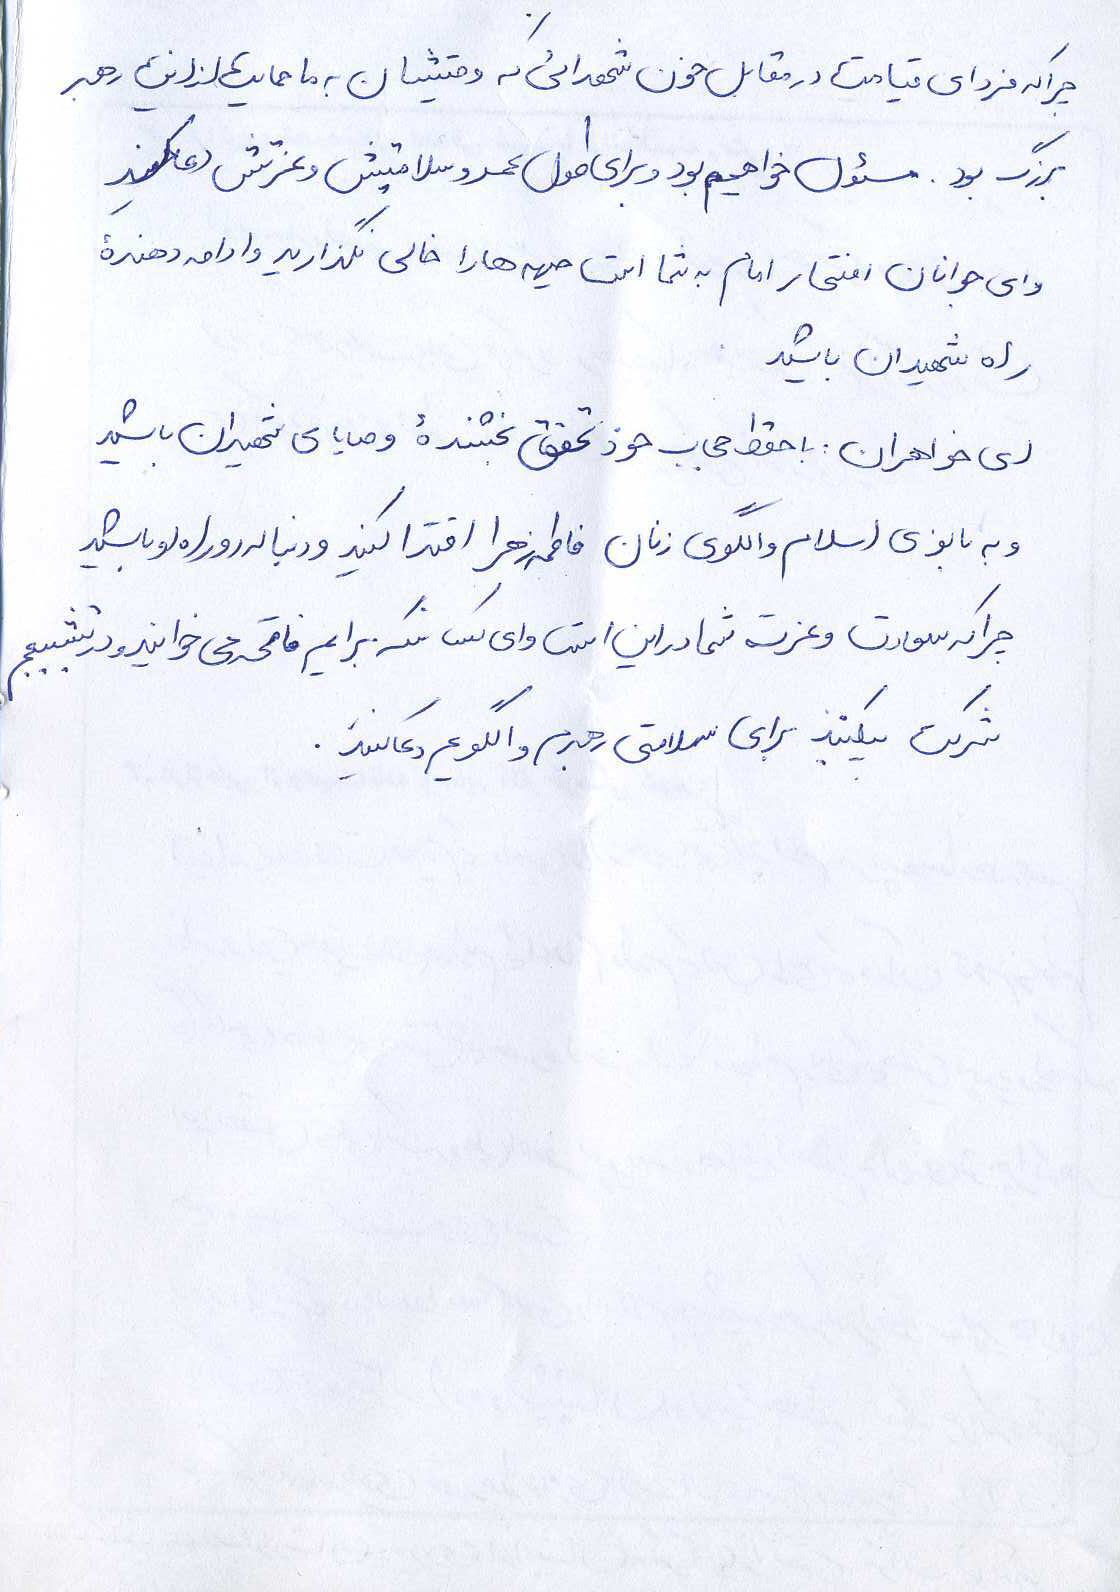 چرا که فردای قیامت در مقابل خون شهدائی که وصیتشان به ما حمایت از این رهبر
بزرگ بود. مسئول خواهیم بود و برای طول عمر و سلامتیش و عزتش دعا کنید
وای جوانان افتخار امام به شما است جبهه ها را خالی نگذارید و ادامه دهندهٔ
راه شهیدان باشید
ای خواهران: با حفظ حجاب خود تحقق بخشندهٔ وصایای شهیدان باشید
و به بانوی اسلام و الگوی زنان فاطمه زهرا اقتدا کنید و دنباله رو راه او باشید
چرا که سعادت و عزت شما در این است وای کسانیکه برایم فاتحه می خوانید و در تشییع
شرکت میکنید برای سلامتی رهبرم و الگویم دعا کنید.